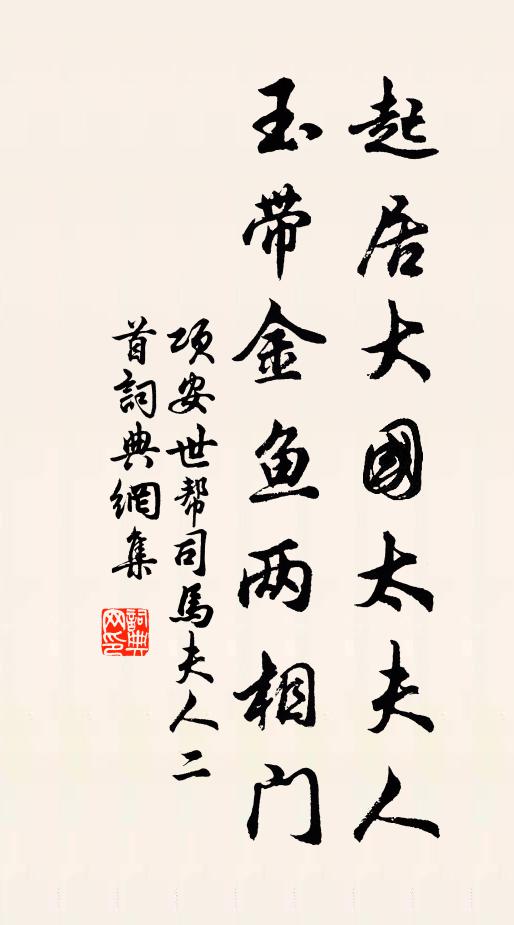 起居大國太夫人
玉带金鱼两相门
项安世帮司馬夫人二
首詞典網集
詞典
网印